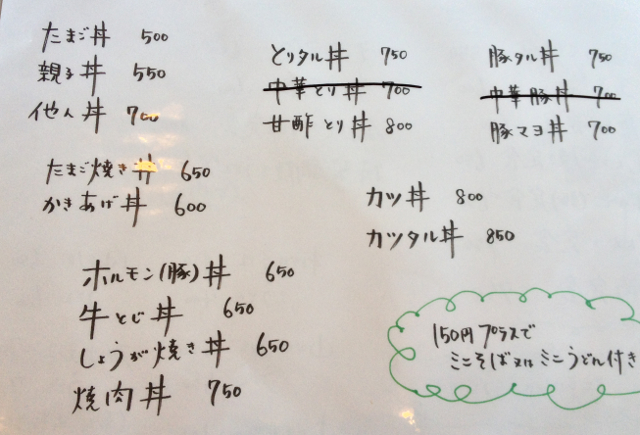 たまご丼 500
親子丼 550
他人丼 700
たまご焼き丼 650
かきあげ丼 600
ホルモン(豚)丼 650
牛とじ丼 650
しょうが焼き丼 650
焼肉丼 750
とりタル丼 750
中華とり丼 700
甘酢とり丼 800
豚タル丼 750
中華豚丼 700
豚マヨ丼 700
カツ丼 800
カツタル丼 850
150円プラスで
ミニそば又はミニうどん付き